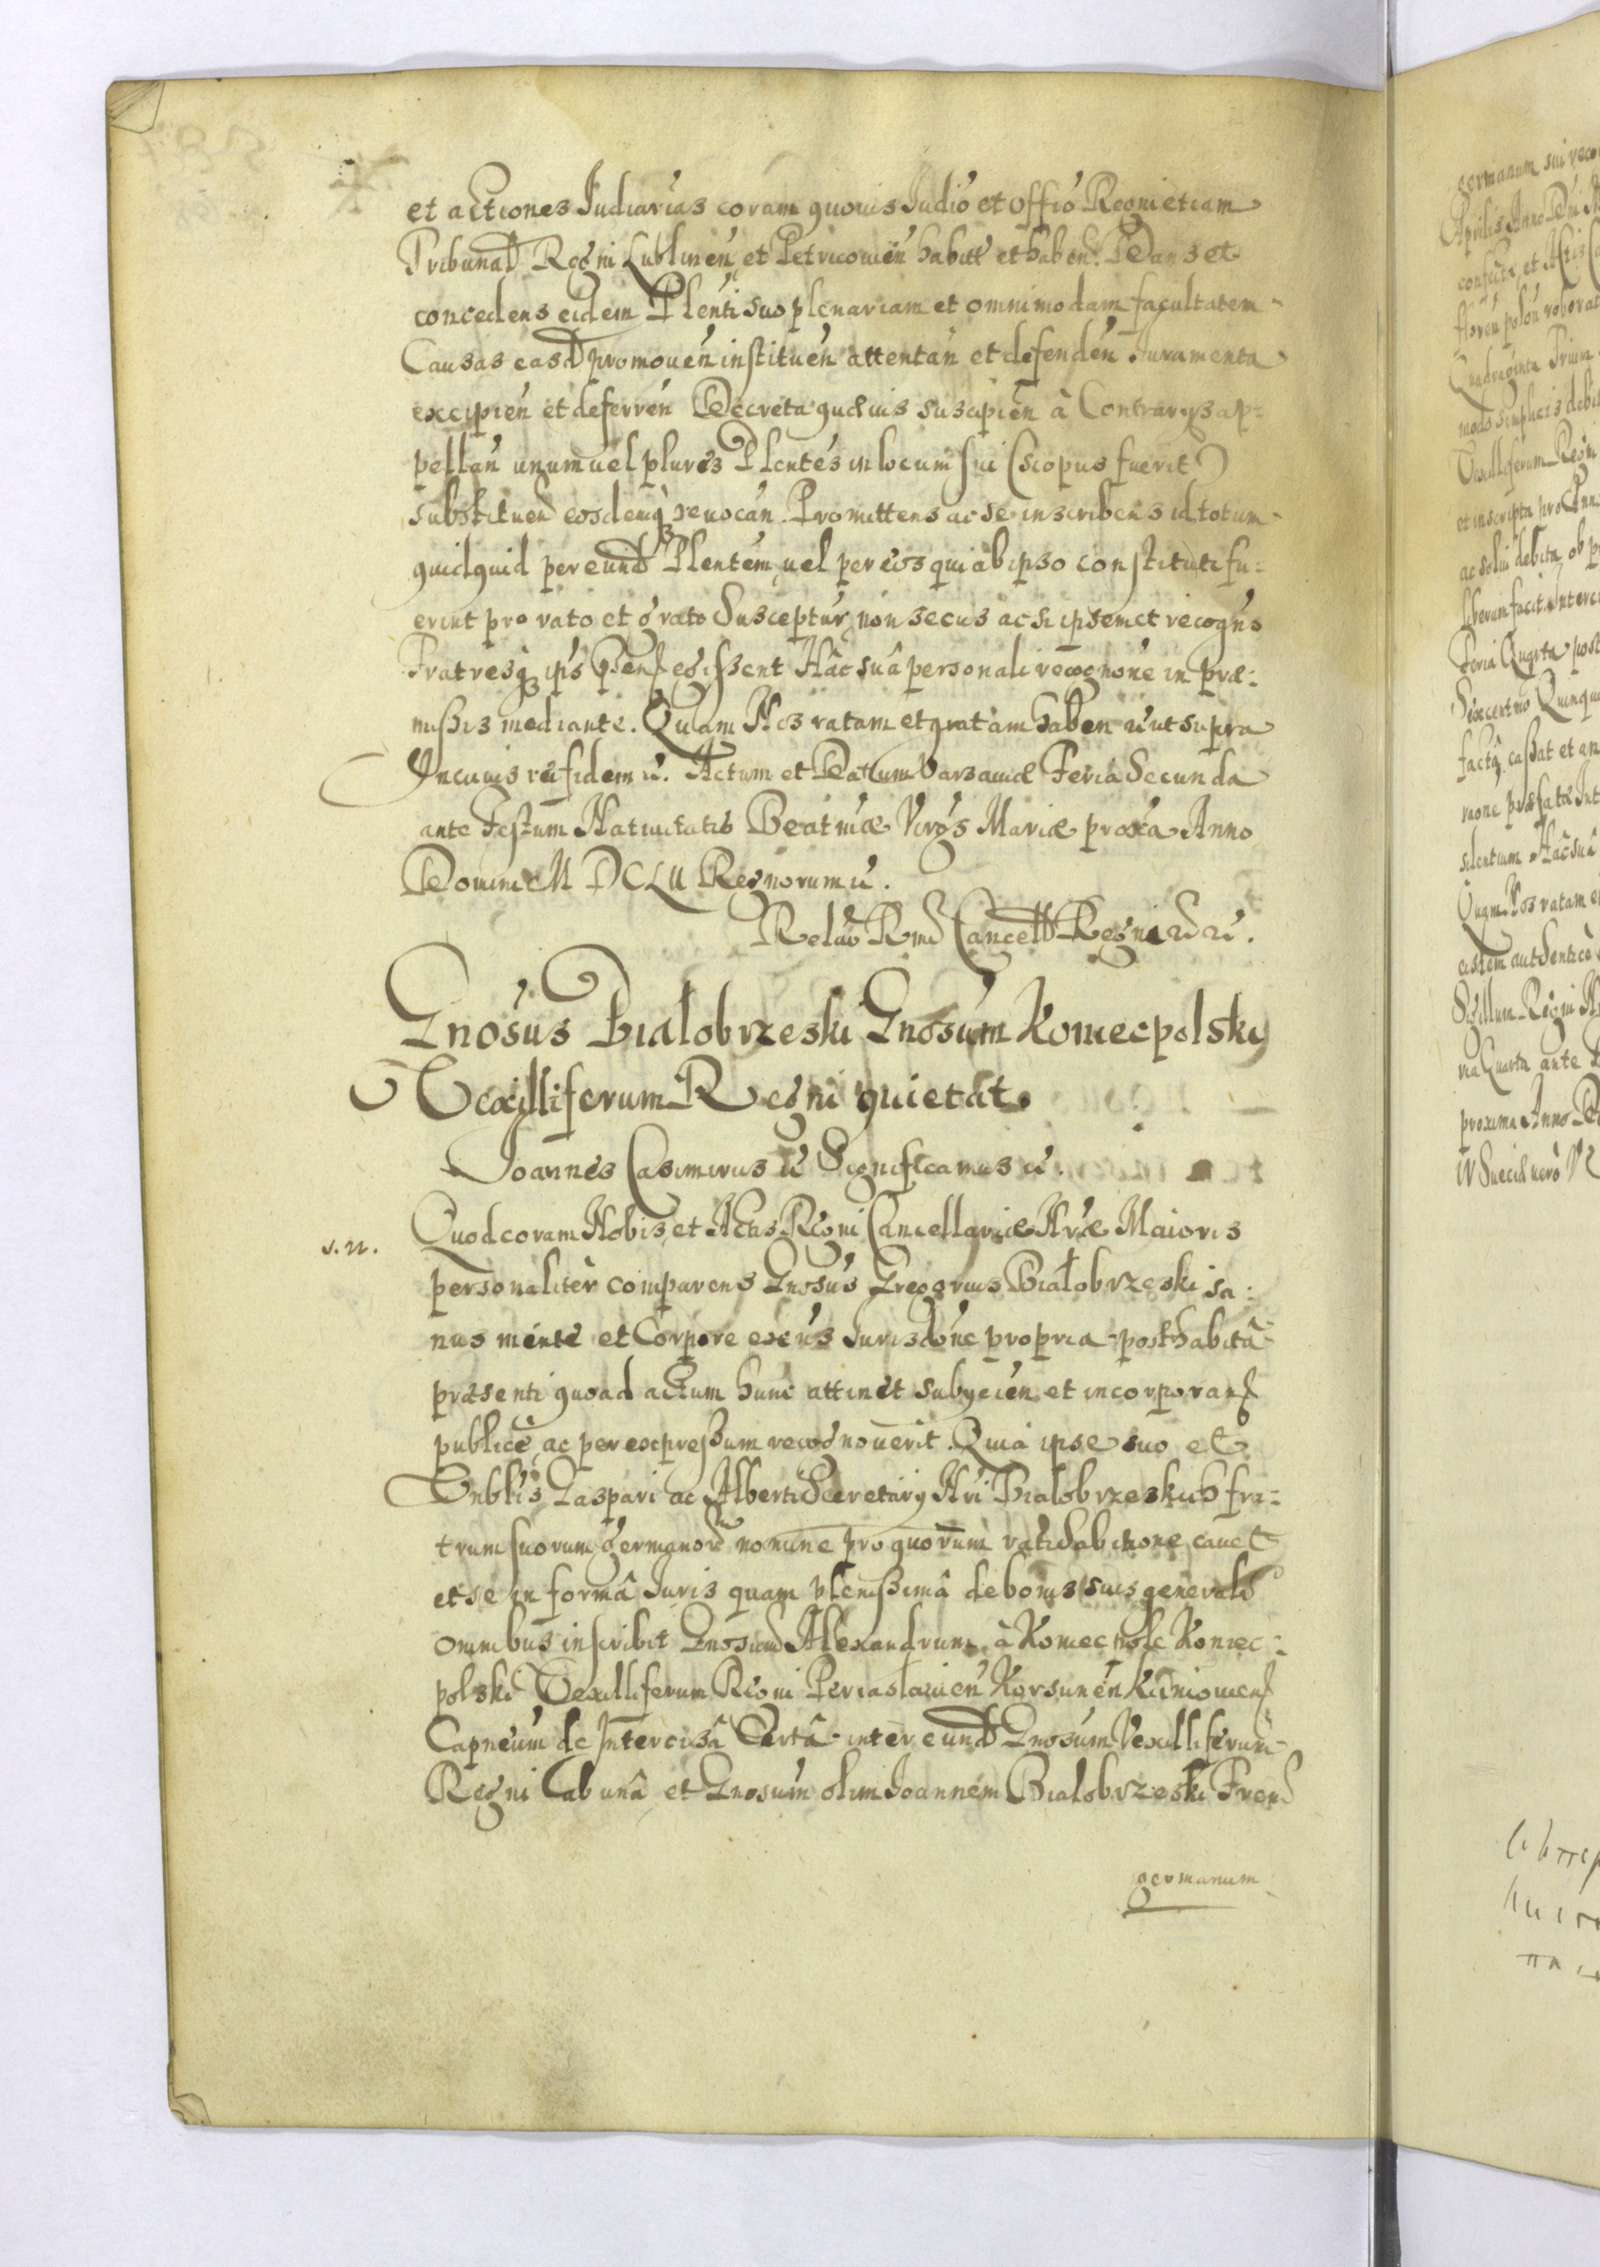 et actiones Iudiarias coram quouis Iudio et Offio Regni etiam
Tribunal Regni Lublinen et Petricouien habitt et haben. Dans et
concedens eidem Plenti suo plenariam et omnimodam facultatem
Causas easd promouen instituen attentan et defenden Iuramenta
excipien et deferren Decreta quæuis suscipien à Contrarys ap-
pellan unum uel plures Plentes in locum sui (si opus fuerit)
substituen eosdemq reuocan. Promittens ac se inscribens id totum
quidquid per eund Plentem uel per eos qui ab ipso constituti fu-
erint pro rato et grato suscepturz non secus ac si ipsemet recogns
Fratresq ips egissent Hâc suâ personali recognone in præ:
missis mediante. Quam Nos ratam et gratam haben ut supra
In cuius rei fidem. Actum et Datum Varsauiæ Feria Secunda
ante Festum Natiuitatis Beatmæ Virgs Mariæ proxa Anno
Domini M DCLII Regnorum
Relao Rmd Cancell Regni
Gnosus Bialobrzeski Gnosum Koniecpolski
Vexilliferum Regni quietat.
Joannes Casimirus Significamus
s. n.
Quod coram Nobis et Actis Regni Cancellariæ Nræ Maioris
personaliter comparens Gnosus Gregorius Białobrzeski sa:
nus mente et Corpore eius Iurisdone propria posthabitâ
præsenti quoad actum hunc attinet subycien et incorporans
publicè ac per expressum recognouerit. Quia ipse suo et
Gnblis Gaspari ac Alberti Secretarij Nri Bialobrzeskich fra:
trum suorum germanor nomine pro quorum ratihabitione cauet
et se in formâ Iuris quam plenissimâ de bonis suis general
omnibus inscribit Gnosum Alexandrum à Koniecpole Koniec:
polski Vexilliferum Regni Periaslauien Korsunen
Capneum de Intercisâ Certâ inter eund Gnosum Vexilliferum
Regni ab unâ et Gnosum olim Joannem Bialobrzeski Frem
germanum
germanum sui
Aprilis Anno Dni
et Actis
floren polon roborat
Quadraginta Prium
modo simplicis debit
Vexilliferum Regni
et inscripta pro
ac solui debita ob
liberum facit
Feria Quarta post
Sexcentmo Quinqua
cassat et an
præfatæ Int
silentium Hâc suâ
Quam Nos ratam et
authenticè
Sigillum Regni
ria Quarta ante
proxima Anno
IV Sueciæ uero